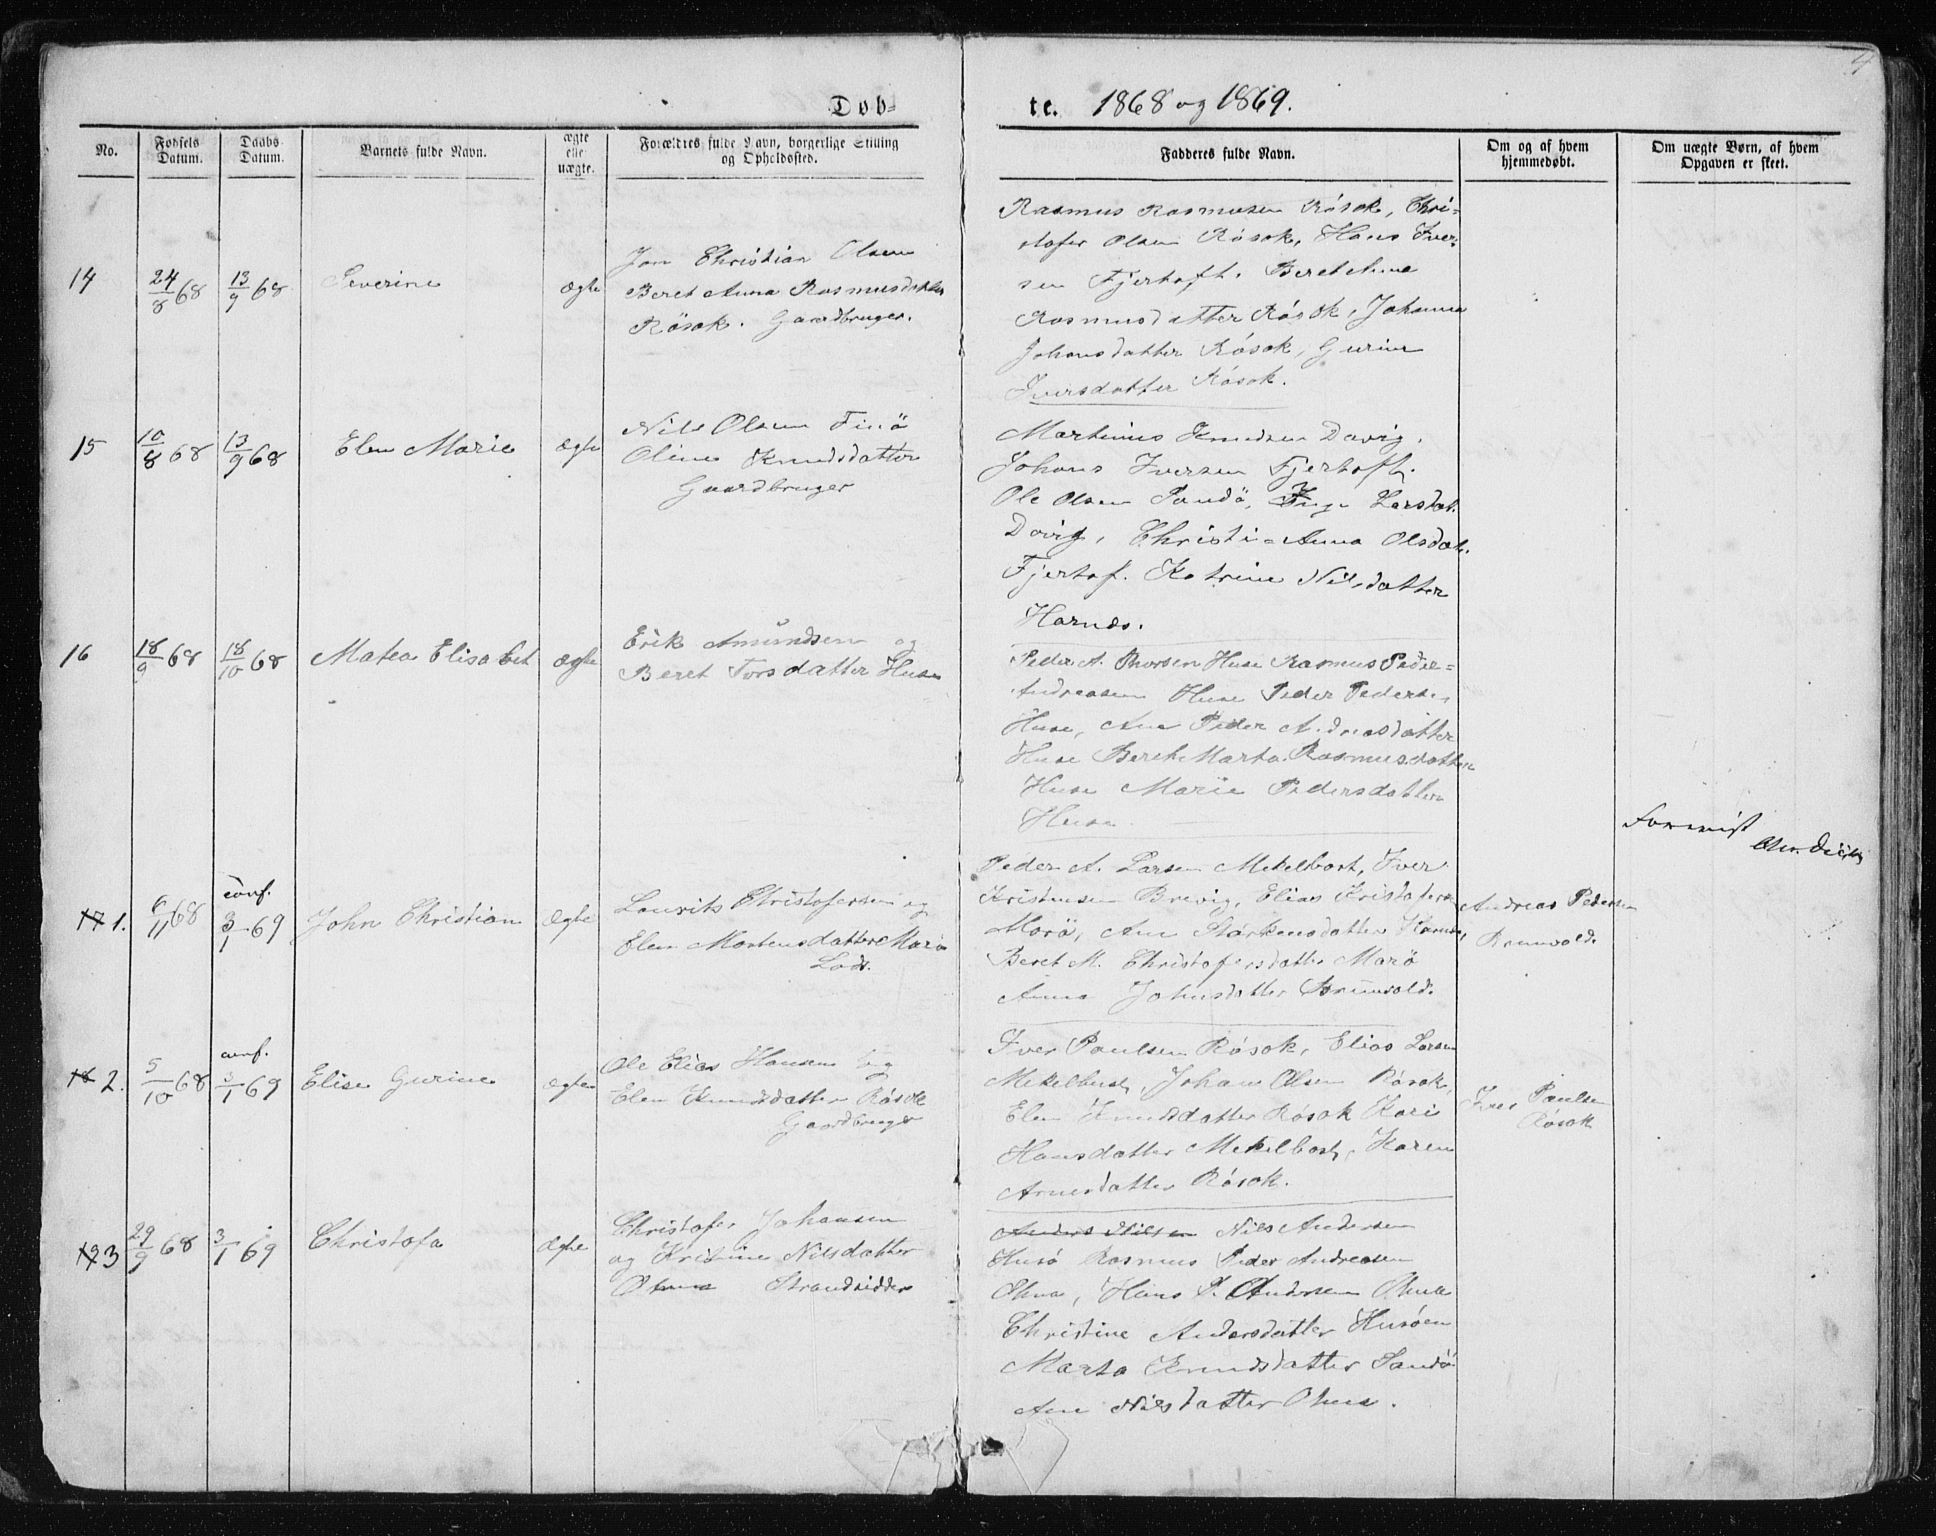 4
Döb-
te. 1868 og 1869.
No.
Fødsels Datum.
Daabs Datum.
Barnets fulde Navn.
ægte elle uægte.
Forældres fulde Navn, borgerlige Stilling og Opholdssted.
Fadderes fulde Navn.
Om og af hvem hjemmedøbt.
Om uægte Børn, af hvem Opgaven er skeet.
14
24/8 68
13/9 68
Severine
Ægte
Jon Christian Olsen
Beret Anna Rasmusdatter
Røsok. Gaardbruger.
Rasmus Rasmusen Røsok, Chri-
stofer Olsen Røsok, Hans Iver-
sen Fjertoft. Beret Anne
Rasmusdatter Røsok, Johanna
Johansdatter Røsok, Gurine
Iversdatter Røsok.
15
10/8 68
13/9 68
Elen Marie
Ægte
Nils Olsen Finö
Oline Knudsdatter
Gaardbruger
Martinus Knudsen Davig.
Johans Iversen Fjertoft.
Ole Olsen Sandö, Inge Larsdat.
Davig, Christi-Anna Olsdat.
Fjertof. Katrine Nilsdatter
Harnæs.
16
18/9 68
18/10 68
Matea Elisabet
Ægte
Erik Amundsen og
Beret Torsdatter Huse
Peder A. Thorsen Huse Rasmus Peder-
Andreasen Huse Peder Pedersen
Huse, Ane Peder Andreasdatter
Huse Beret Marta Rasmusdatter
Huse Marie Pedersdatter
Huse
17 1.
6/11 68
conf.
3/1 69
John Christian
Ægte
Laurits Christofersen og
Elen Mortensdatter Morö
Lods.
Peder A. Larsen Mekelbost, Iver
Kristensen Brevig, Elias Kristofers
Morö, Ane Starkensdatter
Beret M. Christofersdatter Morö
Anna Johnsdatter Brunvold.
Andreas Pedersen
Brunvold.
18 2.
5/10 68
conf.
3/1 69
Elise Gurine
Ægte
Ole Elias Hansen og
Elen Knudsdatter Røsok
Gaardbruger
Iver Paulsen Røsok, Elias Larsen
Mekelbust, Johan Olsen Røsok
Elen Knudsdatter Røsok Kari
Hansdatter Mekelbost, Karen
Arnesdatter Røsok.
Iver Paulsen
Røsok
19 3
29/9 68
3/1 69
Christofa
Ægte
Christofer Johansen
og Kristine Nilsdatter
Ohna Strandsidder
Anders Nilsen Nils Andersen
Husö Rasmus Peder Andreasen
Ohna, Hans P. Andersen Ohna
Christine Andersdatter Husöen
Marta Knudsdatter Sandö
Ane Nilsdatter Ohna.